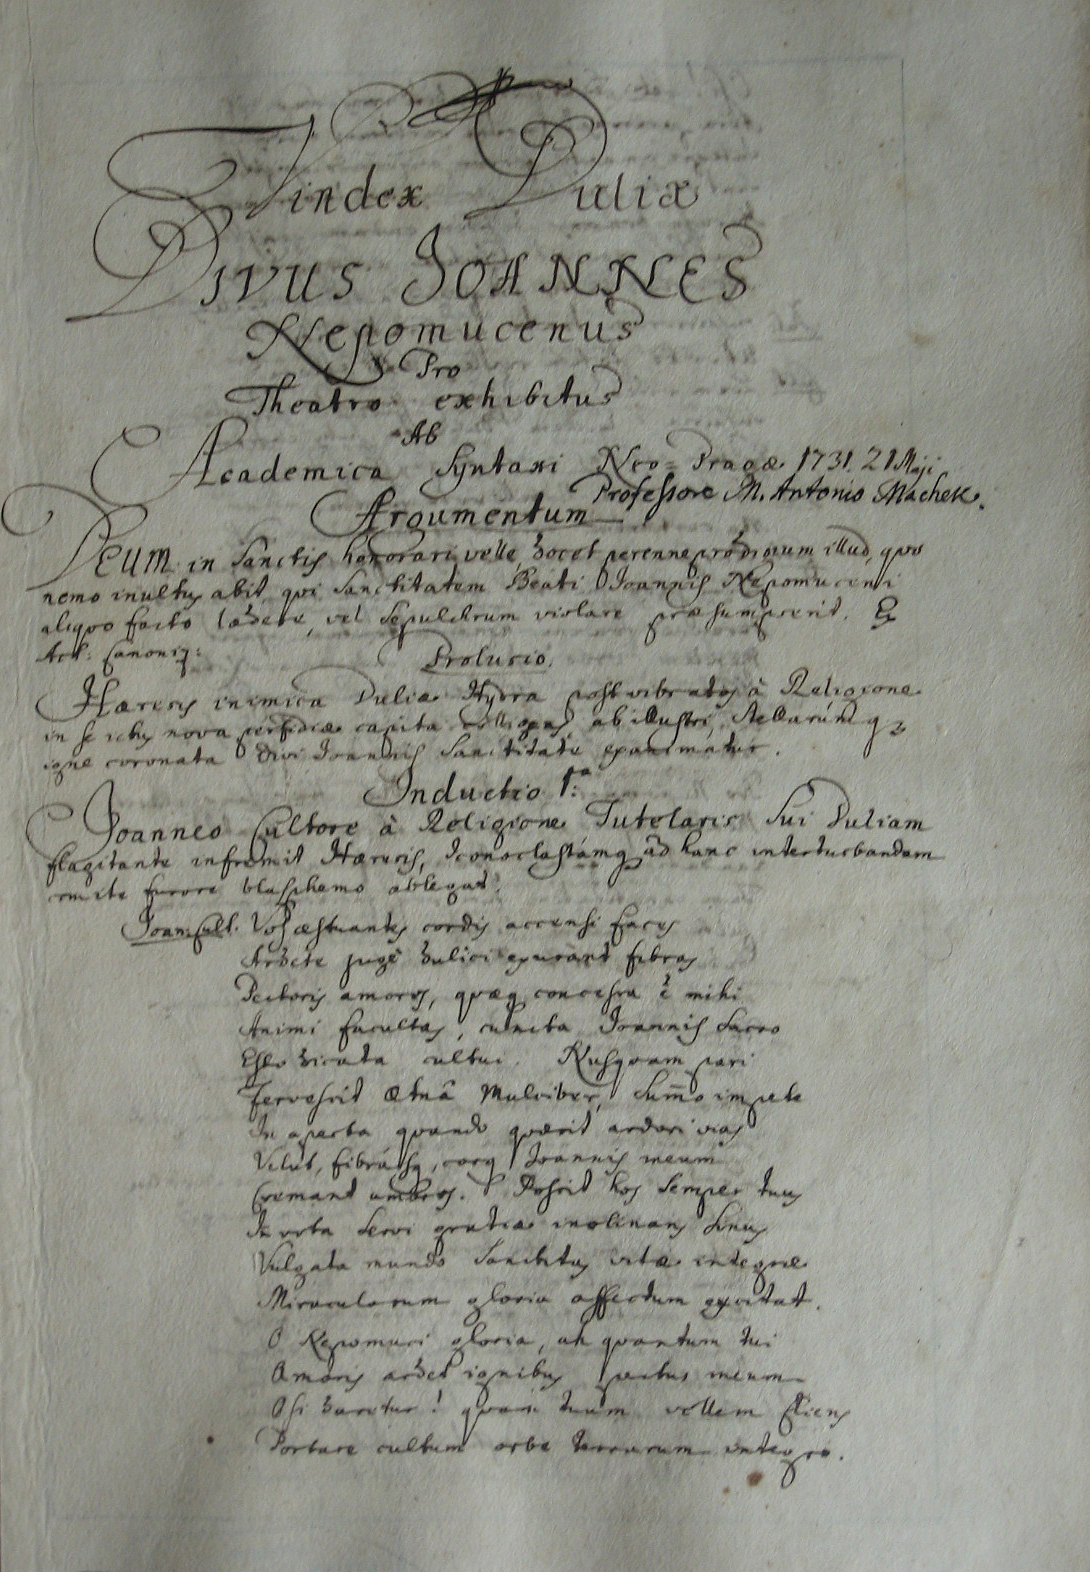 Vindex Duliæ
DIVUS JOANNES
Nepomucenus
Pro
Theatro exhibitus
Ab
Academica Syntaxi Neo-Pragæ 1731. 21 Maji
Professore M. Antonio Machek.
Argumentum
DEUM in Sanctis honorari velle, docet perenne prodigium illud, quo
nemo inultus abit qui Sanctitatem Beati Joannis Nepomuceni
aliquo facto lædere, vel Sepulchrum violare præsumpserit. Ex
Act: Canoniz:
Prolusio.
Hæresis inimica Duliæ Hydra post vibratos à Religione
in se ictus nova perfidiæ capita colligens, ab illustri, Stellarumq3
igne coronata Divi Joannis Sanctitate exanimatur.
Inductio 1.ª
Joanneo Cultore à Religione Tutelaris Sui Duliam
flagitante infremit Hæresis, Iconoclastamq ad hanc interturbandam
comite furore blasphemo ablegat.
Joan: Cult: Vos æstuantes cordis accensi faces
Ardete juge dulici exurant fibras
Pectoris amores, quæq concessa ē mihi
Animi facultas, cuncta Joannis Sacro
Esto dicata cultui. Nusquam pari
Fervescit Ætnâ Mulciber, Sum̄o impete
In aperta quando quærit ardori vias
Velut, fibrasq, corq Joannis meum
Cremant amores. Poscit hos semper tuus
In vota Servi gratiæ inclinans Sinus
Vulgata mundo Sanctitas vitæ integræ
Miraculorum gloria affectum excitat.
O Nepomuci gloria, ah quantum tui
Amoris ardet ignibus pectus meum
O si daretur! quam tuum vellem Cliens
Portare cultum orbe terrarum integro.